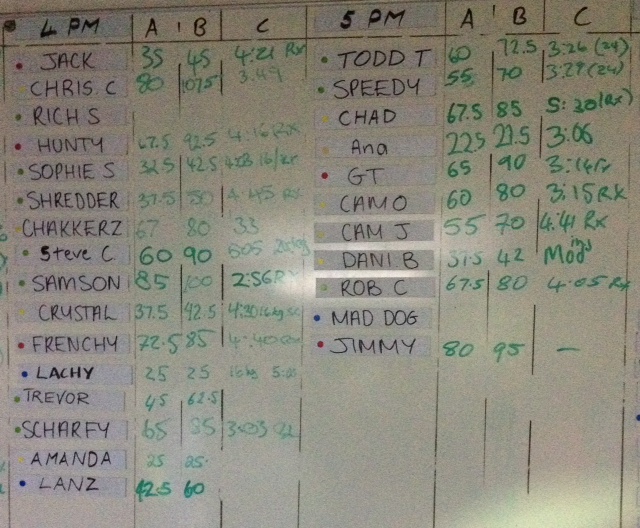 4 PM A B C
JACK 35 45 4:21 Rx
CHRIS. C 80 107.5 3.49
RICH S
HUNTY 67.5 92.5 4:16 Rx
SOPHIE S 32.5 42.5
SHREDDER 37.5 50 4.45 Rx
CHAKKERZ 67 80 33
Steve C. 60 90 605
SAMSON 85 100 2:56 Rx
CRYSTAL 37.5 42.5 4:30 16kg
FRENCHY 72.5 85 4:40
LACHY 25 25 16kg
TREVOR 45 62.5
SCHARFY 65 85 3:03
AMANDA 25 25
LANZ 42.5 60
5 PM A B C
TODD T 60 72.5 3:26 (24)
SPEEDY 55 70 3:27 (24)
CHAD 67.5 85 5:30 (Rx)
Ana 22.5 27.5 3:06
GT 65 90 3:14
CAMO 60 80 3:15 RX
CAM J 55 70 4:41 Rx
DANI B 37.5 42 Mod
ROB C 67.5 80 4.05 Rx
MAD DOG
JIMMY 80 95 —